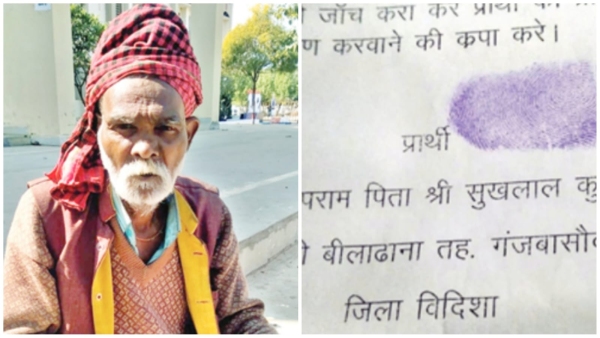 जाँच करा कर प्रार्थी
करवाने की कृपा करे।
प्रार्थी
पिता श्री सुखलाल
बीलाढाना तह. गंजबासौदा
जिला विदिशा